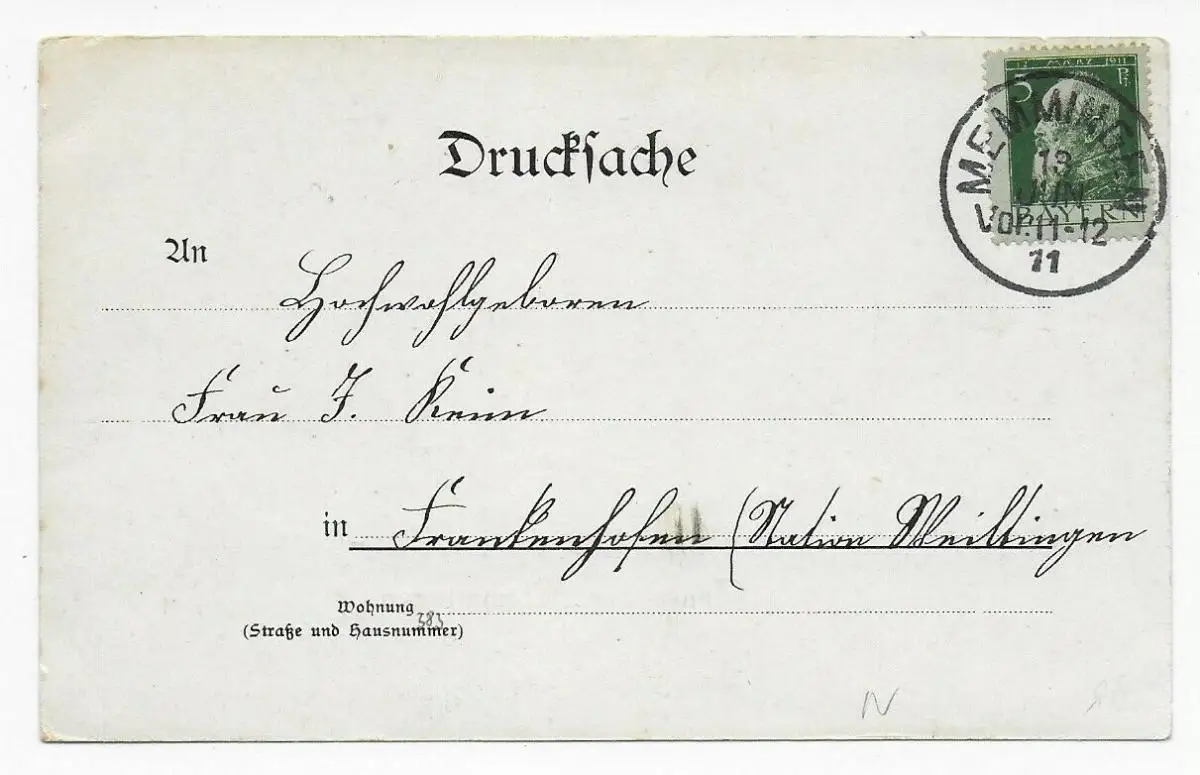 12. MÄRZ 1911
5 Pf.
BAYERN
MEMMINGEN
13
JUN
Vor. 11-12
11
Drucksache
An
Hochwohlgeboren
Frau J. Keim
in Frankenhofen (Station Weiltingen
Wohnung
383
(Straße und Hausnummer)
N